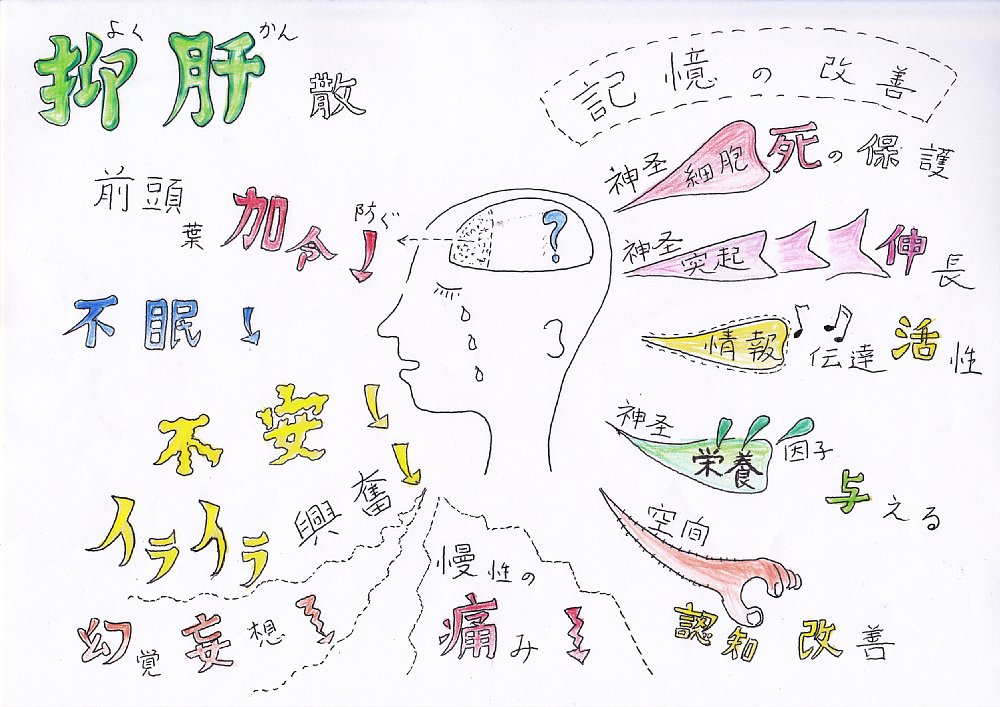 よく かん
抑肝散
前頭葉 加令 防ぐ
不眠
不安
イライラ 興奮
幻覚 妄想
慢性の
痛み
?
記憶の改善
神圣細胞死の保護
神圣突起伸長
情報伝達活性
神圣栄養因子
与える
空向
認知改善